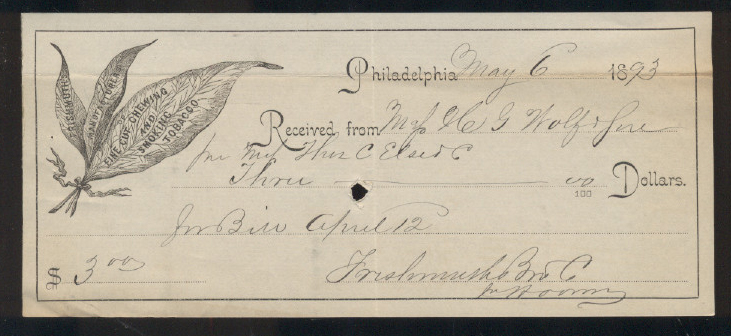 FRISHMUTH
MANUFACTURER
OF
FINE CUT CHEWING
AND
SMOKING
TOBACCO
Philadelphia May 6 1893
Received from Mess H G Wolf & Sons
per Thos C
Three 00/100 Dollars.
for Bill April 12
$ 3 00
Frishmuth Bro & Co